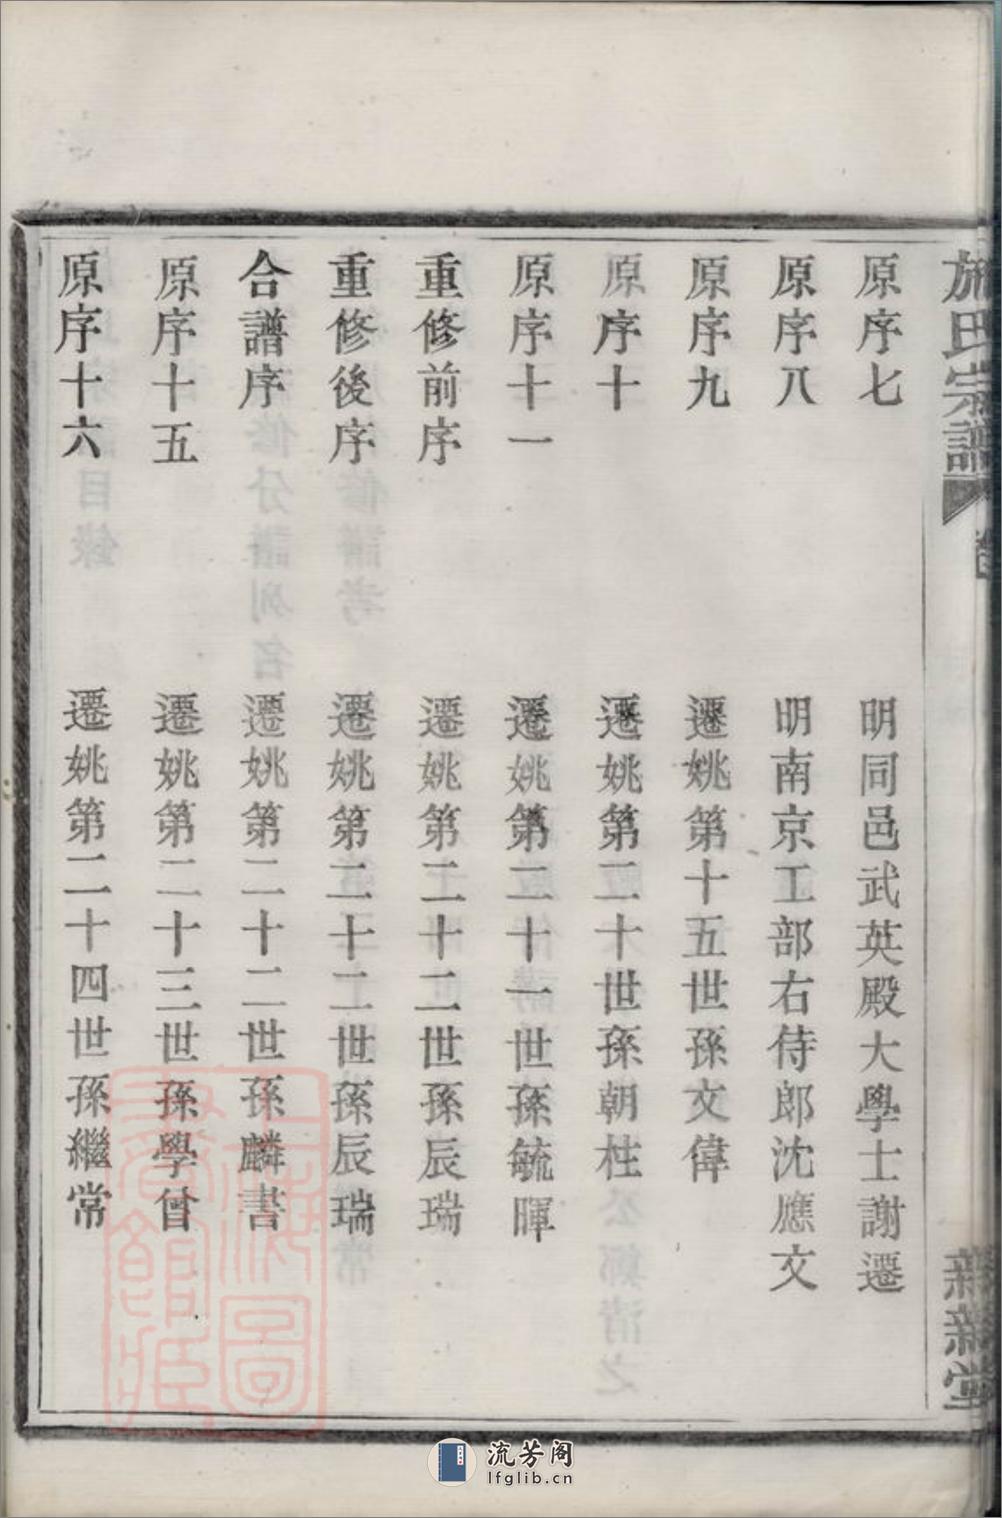 施氏宗譜
原序七 明同邑武英殿大學士謝遷
原序八 明南京工部右侍郎沈應文
原序九 遷姚第十五世孫文偉
原序十 遷姚第二十世孫朝柱
原序十一 遷姚第二十一世孫毓暉
重修前序 遷姚第二十二世孫辰瑞
重修後序 遷姚第二十二世孫辰瑞
合譜序 遷姚第二十二世孫麟書
原序十五 遷姚第二十三世孫學曾
原序十六 遷姚第二十四世孫繼常
上海圖書館藏
流芳阁
lfglib.cn